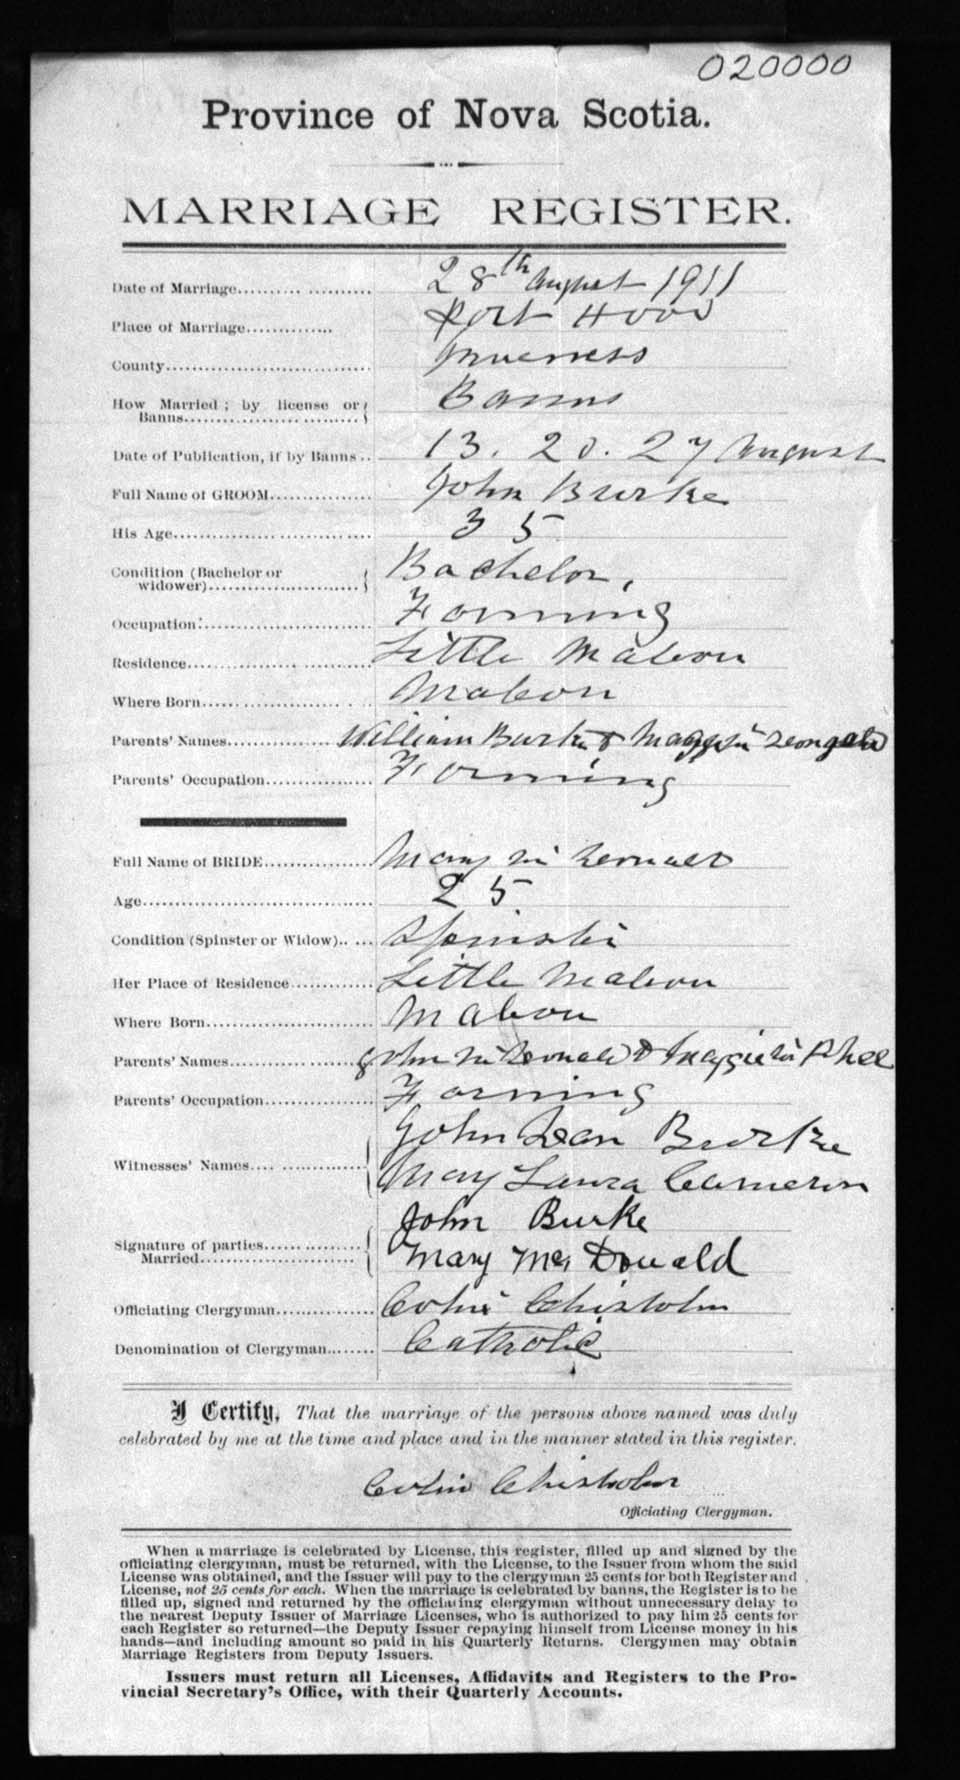 020000
Province of Nova Scotia.
MARRIAGE REGISTER.
Date of Marriage.......... 28th August 1911
Place of Marriage............. Port Hood
County................................ Inverness
How Married ; by license or Banns........................... Banns
Date of Publication, if by Banns .. 13. 20. 27 August
Full Name of GROOM................ John Burke
His Age................................ 35
Condition (Bachelor or widower)........................ Bachelor,
Occupation:........................... Farming
Residence............................ Little Mabou
Where Born........................... Mabou
Parents' Names............... William Burke & Maggie
Parents' Occupation................. Farming
Full Name of BRIDE................. Mary Mc Donald
Age.................................... 25
Condition (Spinster or Widow)..... Spinster
Her Place of Residence............. Little Mabou
Where Born........................... Mabou
Parents' Names...................... John Mc Donald & Maggie Mc Phee
Parents' Occupation................. Farming
Witnesses' Names.................... John Dan Burke
May Laura Cameron
Signature of parties Married........................ John Burke
Mary Mc Donald
Officiating Clergyman............... Colin Chisholm
Denomination of Clergyman....... Catholic
I Certify, That the marriage of the persons above named was duly
celebrated by me at the time and place and in the manner stated in this register.
Colin Chisholm
Officiating Clergyman.
When a marriage is celebrated by License, this register, filled up and signed by the
officiating clergyman, must be returned, with the License, to the Issuer from whom the said
License was obtained, and the Issuer will pay to the clergyman 25 cents for both Register and
License, not 25 cents for each. When the marriage is celebrated by banns, the Register is to be
filled up, signed and returned by the officiating clergyman without unnecessary delay to
the nearest Deputy Issuer of Marriage Licenses, who is authorized to pay him 25 cents for
each Register so returned—the Deputy Issuer repaying himself from License money in his
hands—and including amount so paid in his Quarterly Returns. Clergymen may obtain
Marriage Registers from Deputy Issuers.
Issuers must return all Licenses, Affidavits and Registers to the Pro-
vincial Secretary's Office, with their Quarterly Accounts.